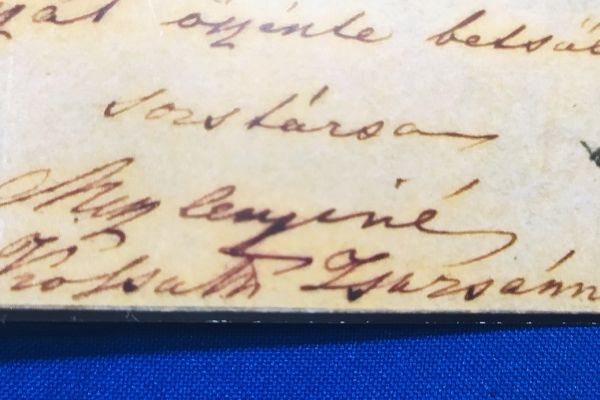 őszinte betsül
sorstársa
Meszlenyiné
Kossuth Zsuzsánn